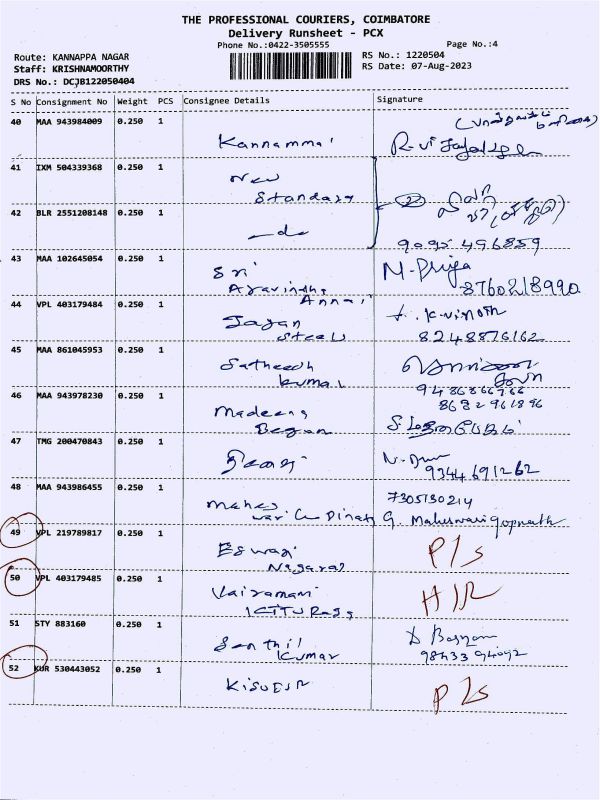 THE PROFESSIONAL COURIERS, COIMBATORE
Delivery Runsheet - PCX
Phone No.:0422-3505555
Page No.:4
Route: KANNAPPA NAGAR
RS No.: 1220504
Staff: KRISHNAMOORTHY
RS Date: 07-Aug-2023
DRS No.: DCJB122050404
S No Consignment No Weight PCS Consignee Details Signature
40 MAA 943984009 0.250 1
Kannammal
41 IXM 504339368 0.250 1
New
Standard
42 BLR 2551208148 0.250 1
-do-
9095 496859
43 MAA 102645054 0.250 1
Sri M.Priya
Aravindha 8760218990
Annai
44 VPL 403179484 0.250 1
Jagan K.vinoth
Steels 8248876162
45 MAA 861045953 0.250 1
Satheesh
Kumar
46 MAA 943978230 0.250 1
8682961896
Madeena
Began
47 TMG 200470843 0.250 1
9344691262
48 MAA 943986455 0.250 1
7305130214
Mahes
wari G Dinath G. Maheswari gopinath
49 VPL 219789817 0.250 1
Eswari P/s
Nagaraj
50 VPL 403179485 0.250 1
Vairamani
51 STY 883160 0.250 1
Senthil
Kumar 98433 94092
52 KUR 530443052 0.250 1
Kisuesr P/s